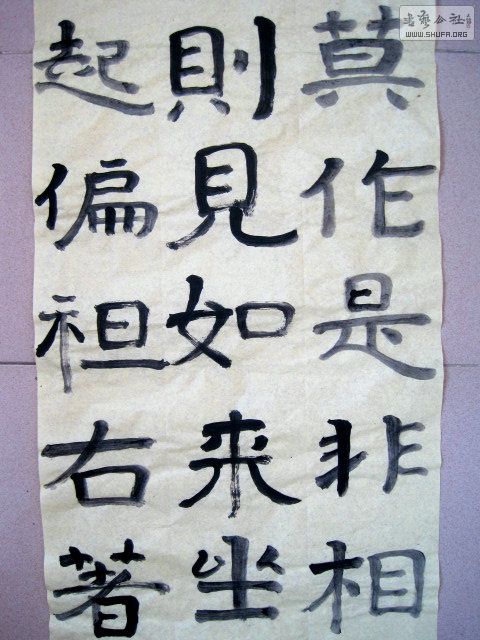 莫作是非相
則見如来坐
起偏袒右著
书艺公社
WWW.SHUFA.ORG